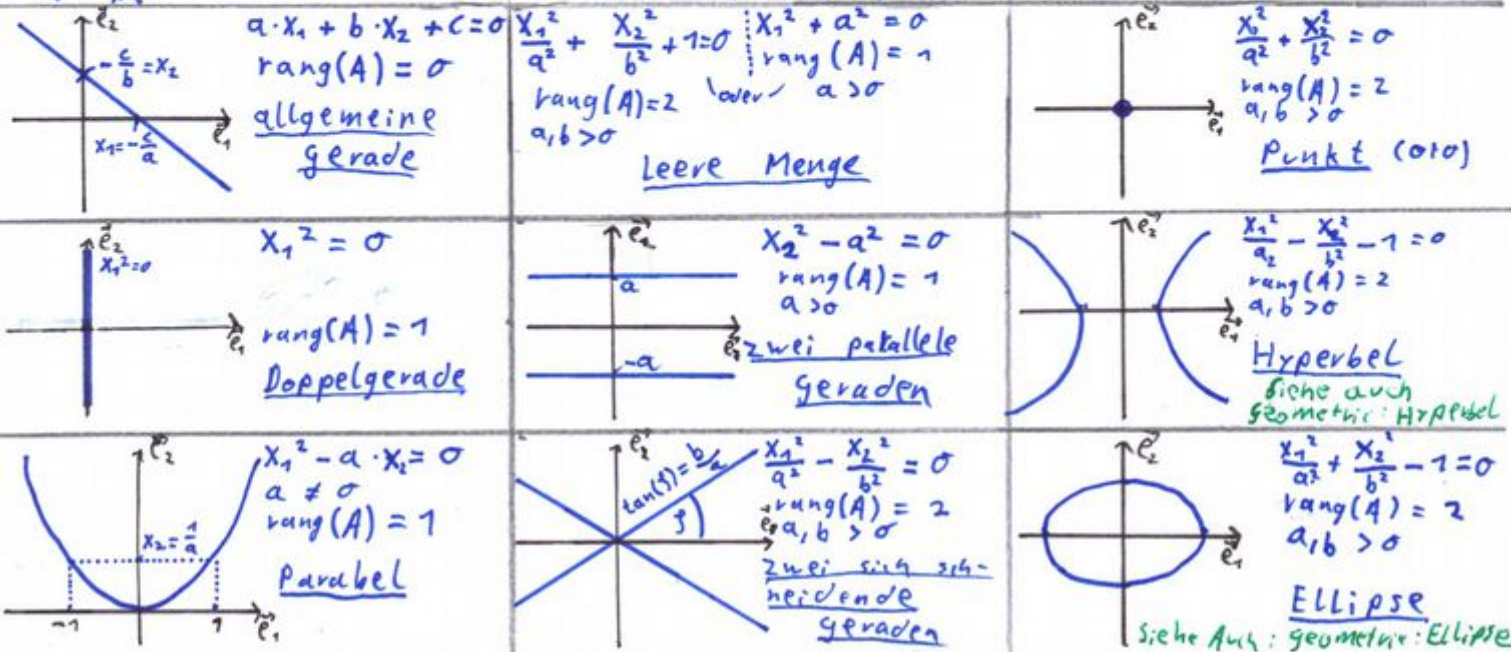 e⃗₂
-c/b = x₂
x₁ = -c/a
e⃗₁
a·x₁ + b·x₂ + c = 0
rang(A) = 0
allgemeine
gerade
x₁²/a² + x₂²/b² + 1 = 0
rang(A) = 2
a, b > 0
oder
x₁² + a² = 0
rang(A) = 1
a > 0
Leere Menge
e⃗₂
e⃗₁
x₁²/a² + x₂²/b² = 0
rang(A) = 2
a, b > 0
Punkt (0|0)
e⃗₂
x₁² = 0
e⃗₁
x₁² = 0
rang(A) = 1
Doppelgerade
e⃗₂
a
-a
x₂² - a² = 0
rang(A) = 1
a > 0
zwei parallele
geraden
e⃗₂
e⃗₁
x₁²/a₂ - x₂²/b² - 1 = 0
rang(A) = 2
a, b > 0
Hyperbel
siehe auch
geometrie: Hyperbel
e⃗₂
x₂ = 1/a
-1
1
e⃗₁
x₁² - a·x₂ = 0
a ≠ 0
rang(A) = 1
Parabel
e⃗₂
tan(φ) = b/a
φ
x₁²/a² - x₂²/b² = 0
rang(A) = 2
a, b > 0
zwei sich sch-
neidende
geraden
e⃗₂
e⃗₁
x₁²/a² + x₂²/b² - 1 = 0
rang(A) = 2
a, b > 0
Ellipse
siehe Auch: geometrie: Ellipse